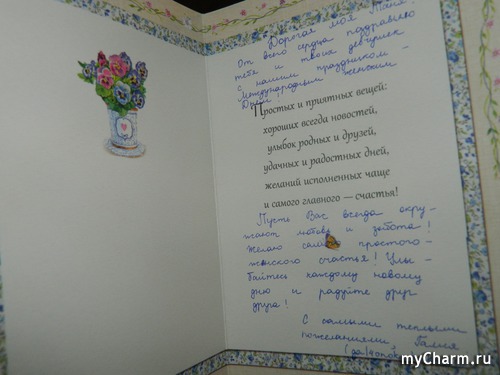 Дорогая моя Таня!
От всего сердца поздравляю
тебя и твоих девчушек
с нашим праздником –
Международным женским
Днём!
Простых и приятных вещей:
хороших всегда новостей,
улыбок родных и друзей,
удачных и радостных дней,
желаний исполненных чаще
и самого главного — счастья!
Пусть Вас всегда окру-
жают любовь и забота!
Желаю самого простого –
женского счастья! Улы-
байтесь каждому новому
дню и радуйте друг
друга!
С самыми теплыми
пожеланиями, Галия
myCharm.ru